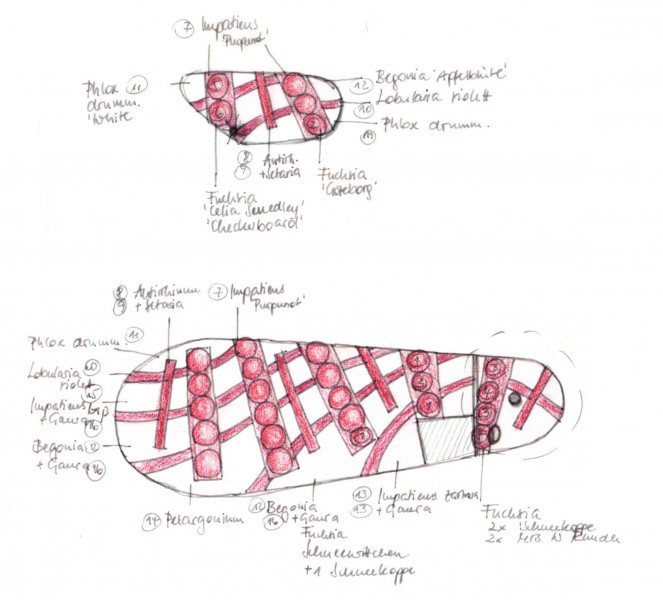 7 Impatiens
'Purpurrot'
Phlox 11
drumm.
'White'
12 Begonia 'Apfelblüte'
10 Lobularia violett
11 Phlox drumm.
8 Antirrh.
9 + Setaria
Fuchsia
'Göteborg'
Fuchsia
'Celia Smedley'
'Checkerboard'
8 Antirrhinum
9 + Setaria
7 Impatiens
'Purpurrot'
Phlox drumm. 11
Lobularia 10
violett
Impatiens 15
+ Gaura 16
Begonia 12
+ Gaura 16
14 Pelargonium
12 Begonia
16 + Gaura
Fuchsia
Schneewittchen
+ 1 Schneekoppe
13 Impatiens
+ Gaura
Fuchsia
2x Schneekoppe
2x